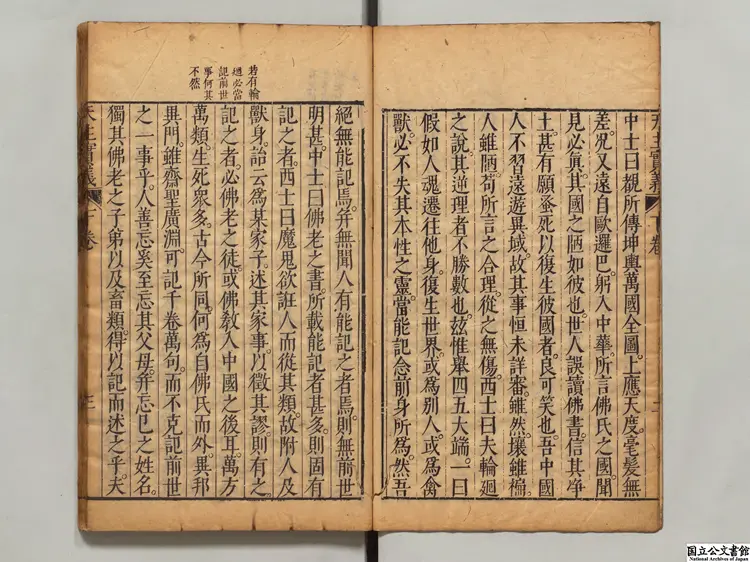 天主實義 下卷
中士曰。觀所傳坤輿萬國全圖。上應天度。毫髮無
差。况又遠自歐邏巴。躬入中華。所言佛氏之國。聞
見必真。其國之陋如彼也。世人誤讀佛書。信其淨
土。甚有願蚤死以復生彼國者。良可笑也。吾中國
人不習遠遊異域。故其事恒未詳審。雖然。壤雖褊。
人雖陋。苟所言之合理。從之無傷。西士曰。夫輪廻
之說。其逆理者不勝數也。玆惟舉四五大端。一曰
假如人魂遷往他身。復生世界。或爲別人。或爲禽
獸。必不失其本性之靈。當能記念前身所爲。然吾
若有輪
廻必當
記前世
事何其
不然
絕無能記焉。并無聞人有能記之者焉。則無前世
明甚。中士曰。佛老之書。所載能記者甚多。則固有
記之者。西士曰。魔鬼欲誑人而從其類。故附人及
獸身。詒云爲某家子。述其家事。以徵其謬。則有之。
記之者。必佛老之徒。或佛教入中國之後耳。萬方
萬類。生死衆多。古今所同。何爲自佛氏而外。異邦
異門。雖齋聖廣淵。可記千卷萬句。而不克記前世
之一事乎。人善忘。奚至忘其父母。并忘巳之姓名。
獨其佛老之子弟。以及畜類。得以記而述之乎。夫
天主實義 下卷 三
国立公文書館
National Archives of Japan